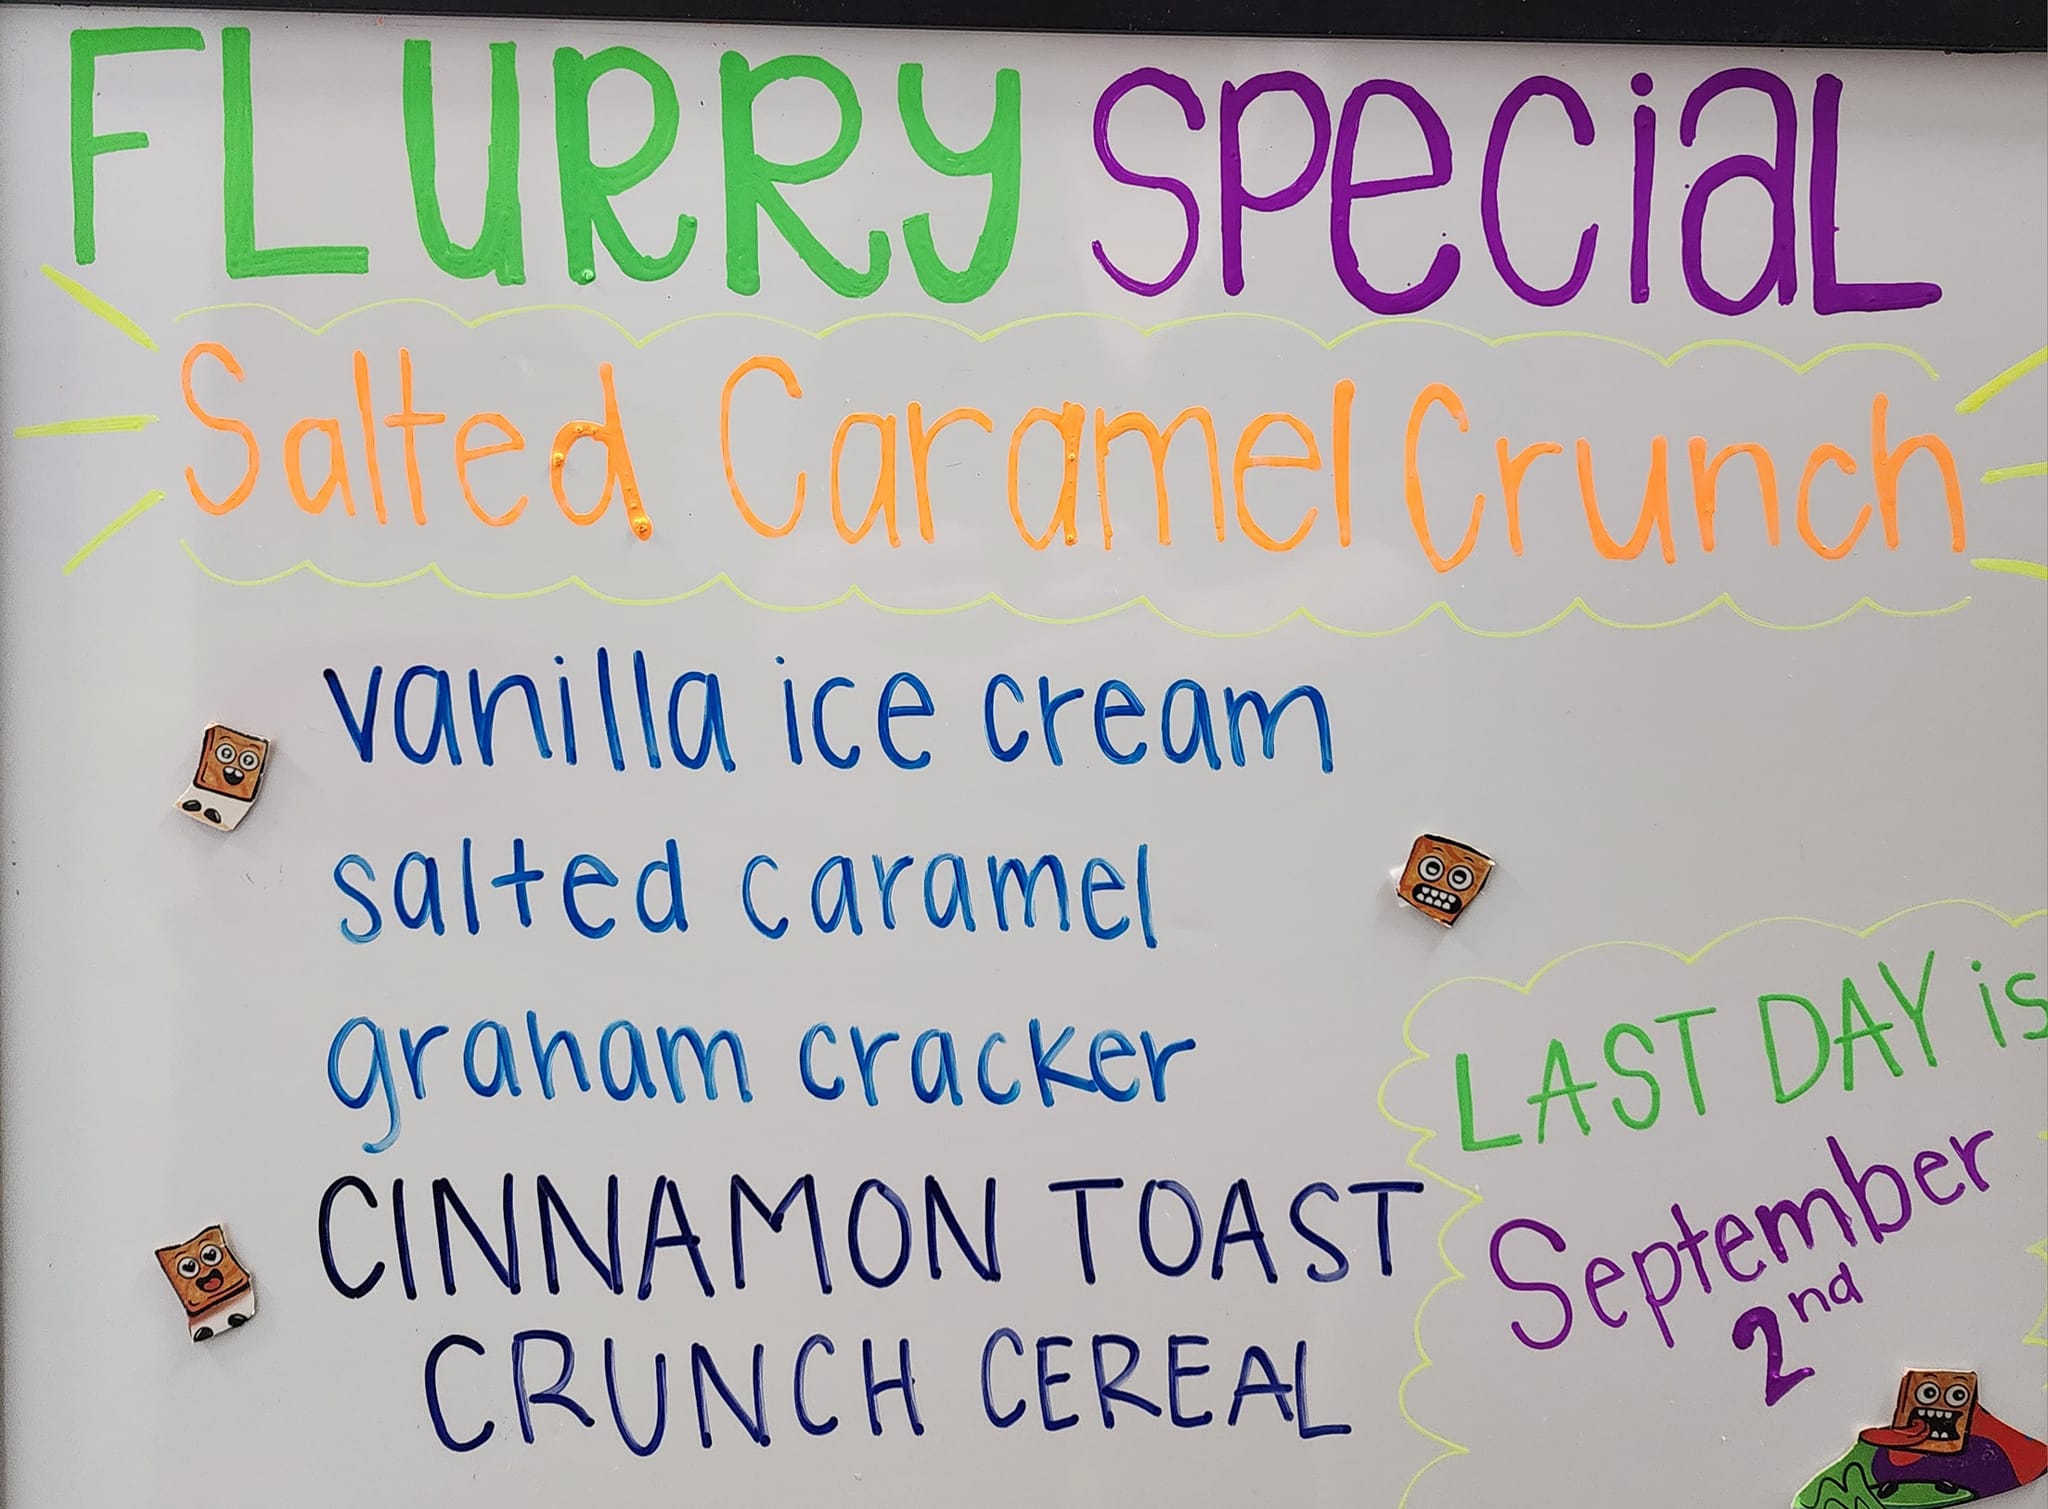 FLURRY SPECIAL
Salted Caramel Crunch
vanilla ice cream
salted caramel
graham cracker
CINNAMON TOAST
CRUNCH CEREAL
LAST DAY is
September
2nd